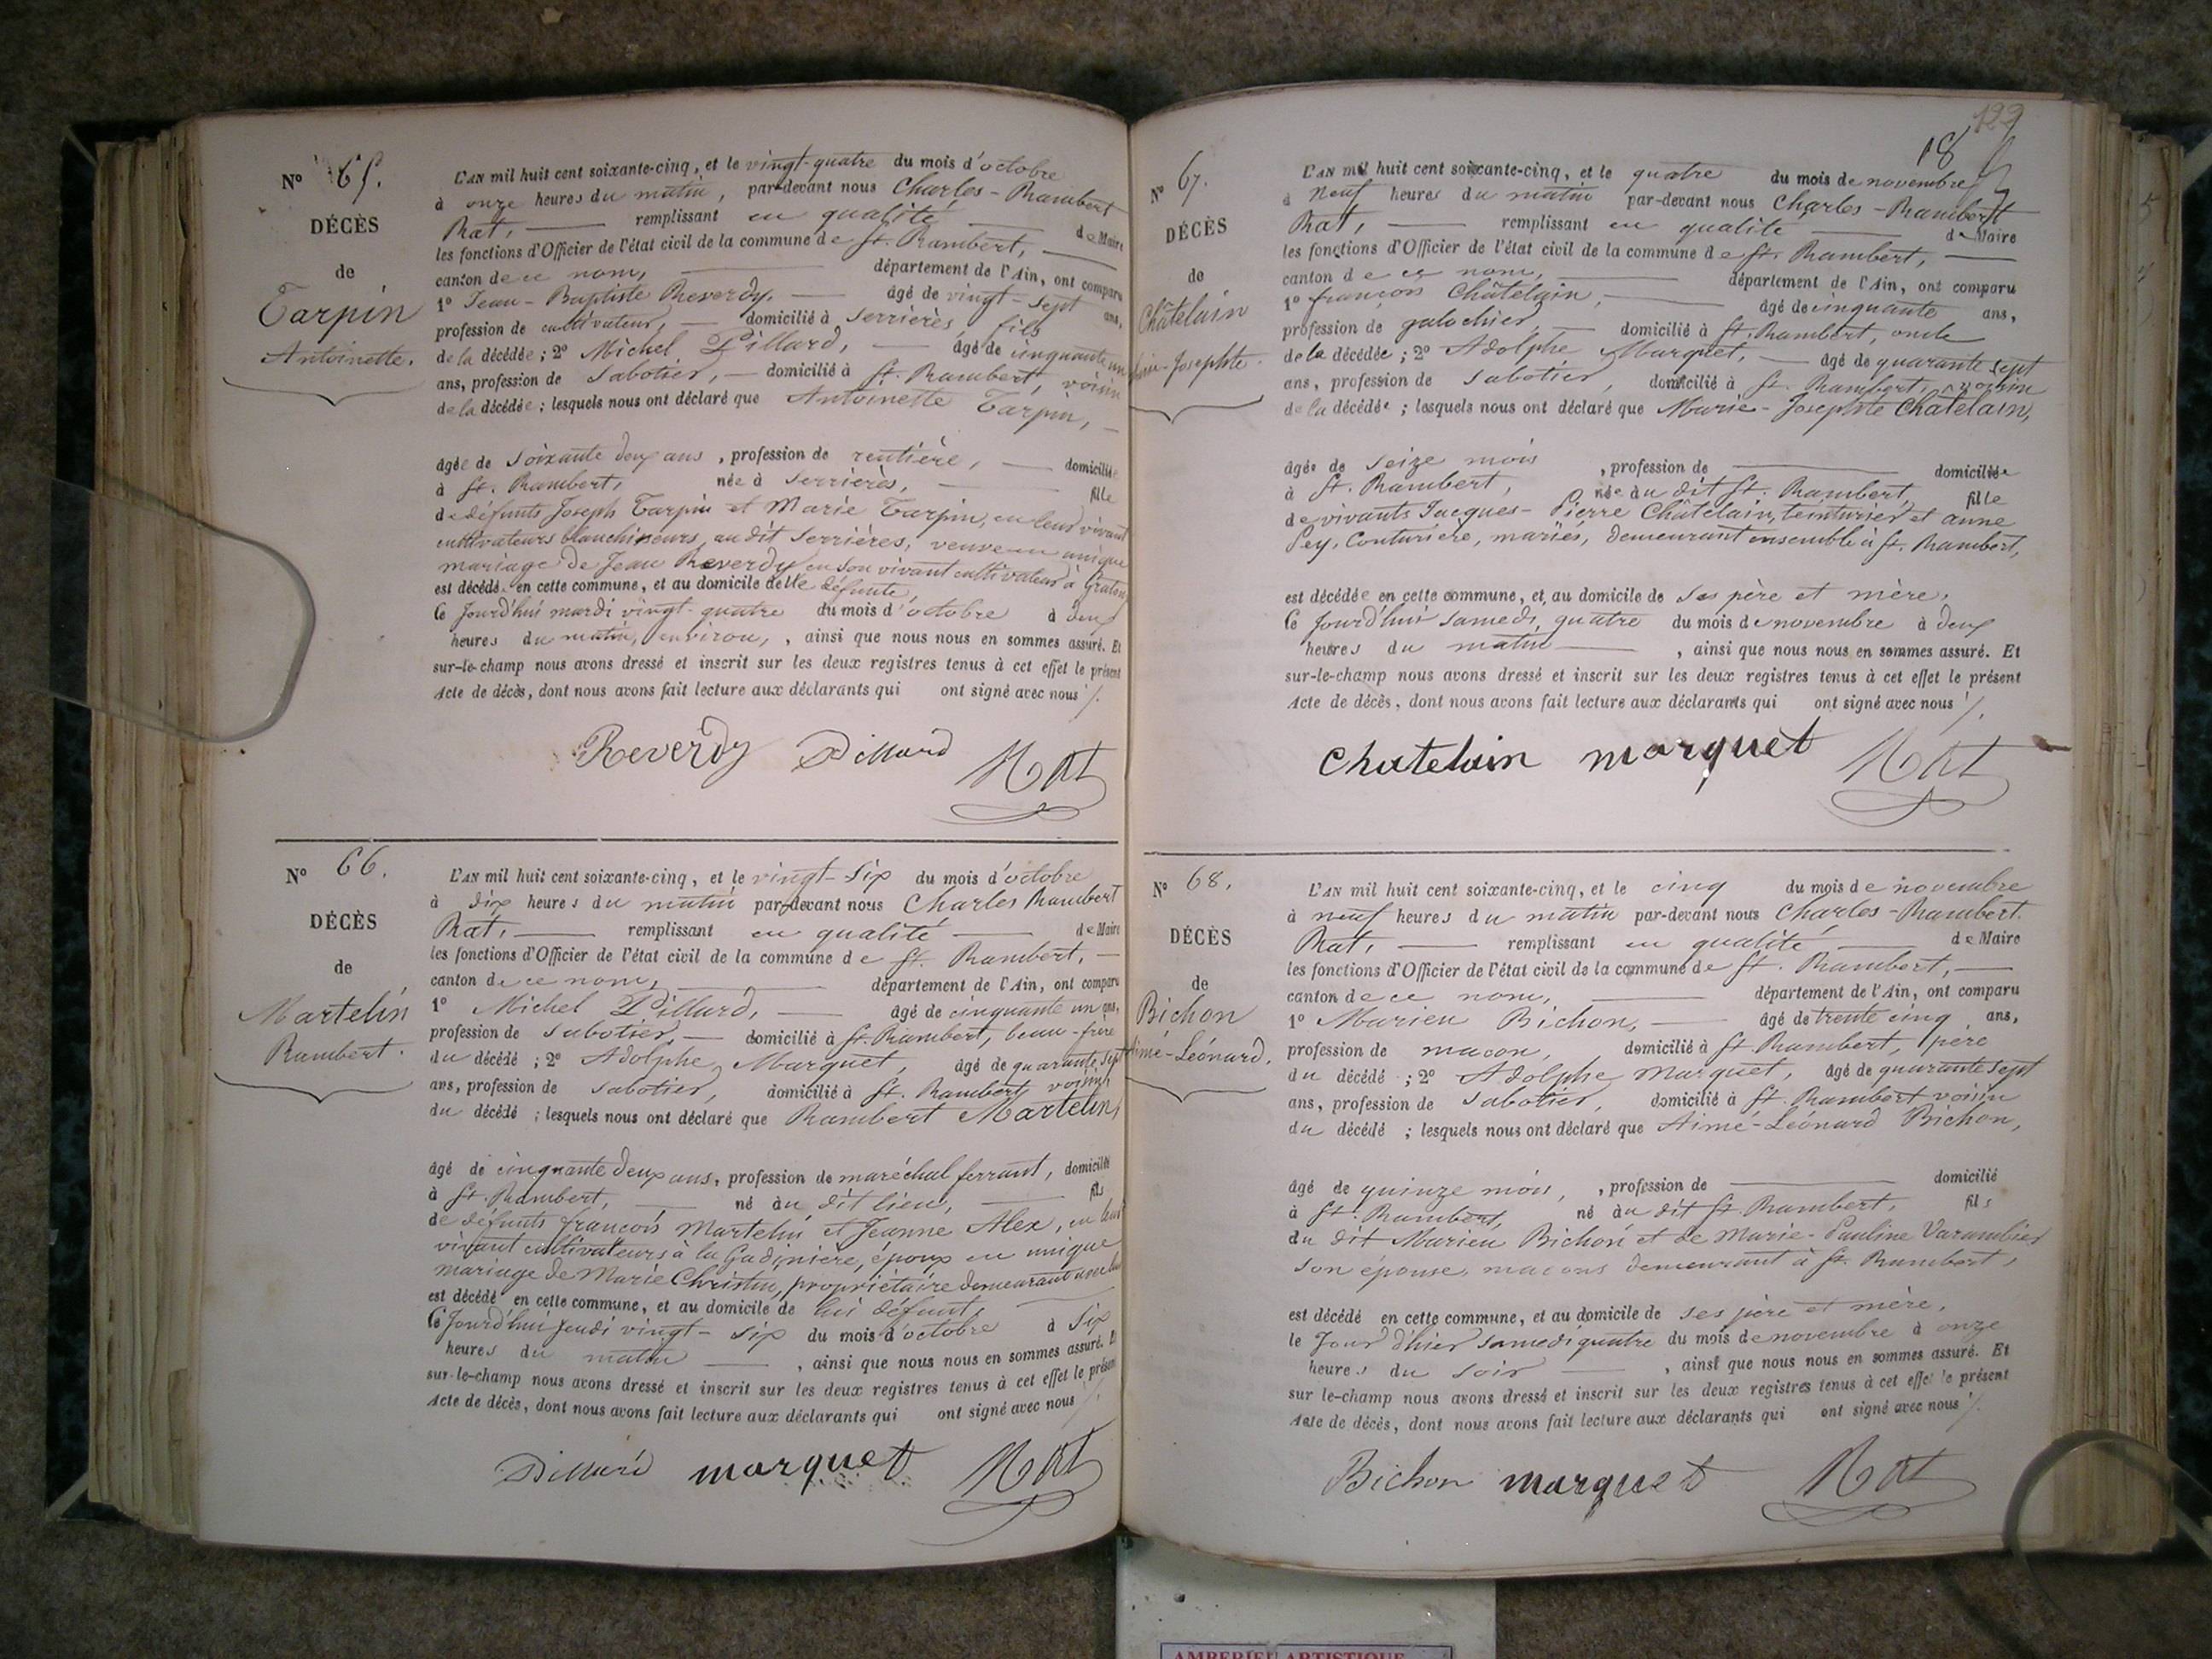 Nº 65.
DÉCÈS
de
Tarpin
Antoinette.
L'AN mil huit cent soixante-cinq, et le vingt-quatre du mois d'octobre
à onze heures du matin, par-devant nous Charles-Rambert
Rat, remplissant en qualité de Maire
les fonctions d'Officier de l'état civil de la commune de St. Rambert,
canton de ce nom, département de l'Ain, ont comparu
1º Jean-Baptiste Reverdy, âgé de vingt-sept ans,
profession de cultivateur, domicilié à Serrières, fils
de la décédée ; 2º Michel Dillard, âgé de cinquante un
ans, profession de Sabotier, domicilié à St. Rambert, voisin
de la décédée ; lesquels nous ont déclaré que Antoinette Tarpin,
âgée de soixante deux ans, profession de rentière, domiciliée
à St. Rambert, née à Serrières, fille
de défunts Joseph Tarpin et Marie Tarpin, en leur vivant
cultivateurs blanchisseurs, au dit Serrières, veuve en unique
mariage de Jean Reverdy en son vivant cultivateur à
est décédée en cette commune, et au domicile de lle défunte,
Ce Jourd'hui mardi vingt-quatre du mois d'octobre à deux
heures du matin, environ, , ainsi que nous nous en sommes assuré. Et
sur-le-champ nous avons dressé et inscrit sur les deux registres tenus à cet effet le présent
Acte de décès, dont nous avons fait lecture aux déclarants qui ont signé avec nous ./.
Reverdy Dillard Rat
Nº 66.
DÉCÈS
de
Martelin
Rambert.
L'AN mil huit cent soixante-cinq, et le vingt-six du mois d'octobre
à dix heures du matin par-devant nous Charles Rambert
Rat, remplissant en qualité de Maire
les fonctions d'Officier de l'état civil de la commune de St. Rambert,
canton de ce nom, département de l'Ain, ont comparu
1º Michel Dillard, âgé de cinquante un ans,
profession de Sabotier, domicilié à St. Rambert, beau-frère
du décédé ; 2º Adolphe Marquet, âgé de quarante sept
ans, profession de Sabotier, domicilié à St. Rambert voisin
du décédé ; lesquels nous ont déclaré que Rambert Martelin,
âgé de cinquante deux ans, profession de maréchal ferrant, domicilié
à St. Rambert, né au dit lieu, fils
de défunts françois Martelin et Jeanne Alex, en leur
vivant cultivateurs à la époux en unique
mariage de Marie Christin, propriétaire demeurant avec lui
est décédé en cette commune, et au domicile de lui défunt,
Ce Jourd'hui Jeudi vingt-six du mois d'octobre à Six
heures du matin , ainsi que nous nous en sommes assuré. Et
sur-le-champ nous avons dressé et inscrit sur les deux registres tenus à cet effet le présent
Acte de décès, dont nous avons fait lecture aux déclarants qui ont signé avec nous ./.
Dillard marquet Rat
18
Nº 67.
DÉCÈS
de
Châtelain
-Josephte.
L'AN mil huit cent soixante-cinq, et le quatre du mois de novembre
à Neuf heures du matin par-devant nous Charles-Rambert
Rat, remplissant en qualité de Maire
les fonctions d'Officier de l'état civil de la commune de St. Rambert,
canton de ce nom, département de l'Ain, ont comparu
1º françois Châtelain, âgé de cinquante ans,
profession de galochier, domicilié à St. Rambert, oncle
de la décédée ; 2º Adolphe Marquet, âgé de quarante sept
ans, profession de Sabotier, domicilié à St. Rambert, voisin
de la décédée ; lesquels nous ont déclaré que Marie-Josephte Châtelain,
âgée de seize mois , profession de domiciliée
à St. Rambert, née au dit St. Rambert, fille
de vivants Jacques-Pierre Châtelain, teinturier et anne
Pey, Couturière, mariés, demeurant ensemble à St. Rambert,
est décédée en cette commune, et au domicile de ses père et mère,
Ce Jourd'hui Samedi quatre du mois de novembre à deux
heures du matin , ainsi que nous nous en sommes assuré. Et
sur-le-champ nous avons dressé et inscrit sur les deux registres tenus à cet effet le présent
Acte de décès, dont nous avons fait lecture aux déclarants qui ont signé avec nous ./.
Chatelain marquet Rat
Nº 68.
DÉCÈS
de
Bichon
Aimé-Léonard.
L'AN mil huit cent soixante-cinq, et le cinq du mois de novembre
à neuf heures du matin par-devant nous Charles-Rambert
Rat, remplissant en qualité de Maire
les fonctions d'Officier de l'état civil de la commune de St. Rambert,
canton de ce nom, département de l'Ain, ont comparu
1º Marien Bichon, âgé de trente cinq ans,
profession de maçon, domicilié à St. Rambert, père
du décédé ; 2º Adolphe Marquet, âgé de quarante sept
ans, profession de Sabotier, domicilié à St. Rambert voisin
du décédé ; lesquels nous ont déclaré que Aimé-Léonard Bichon,
âgé de quinze mois, , profession de domicilié
à St. Rambert, né au dit St. Rambert, fils
du dit Marien Bichon et de Marie-Pauline Varambier
son épouse, maçons demeurant à St. Rambert,
est décédé en cette commune, et au domicile de ses père et mère,
le Jour d'hier samedi quatre du mois de novembre à onze
heures du soir , ainsi que nous nous en sommes assuré. Et
sur le-champ nous avons dressé et inscrit sur les deux registres tenus à cet effet le présent
Acte de décès, dont nous avons fait lecture aux déclarants qui ont signé avec nous ./.
Bichon marquet Rat
AMBERIEU ARTISTIQUE